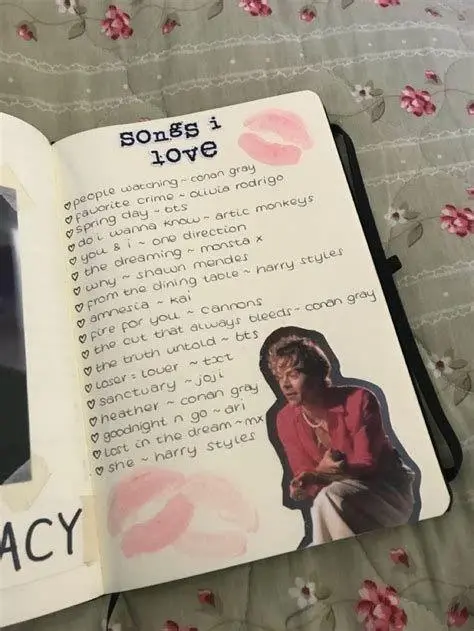 songs i
love
people watching ~ conan gray
favorite crime ~ olivia rodrigo
spring day ~ bts
do i wanna know ~ artic monkeys
you & i ~ one direction
the dreaming ~ monsta x
why ~ shawn mendes
from the dining table ~ harry styles
amnesia ~ kai
fire for you ~ cannons
the cut that always bleeds ~ conan gray
the truth untold ~ bts
loser = lover ~ txt
sanctuary ~ joji
heather ~ conan gray
goodnight n go ~ ari
lost in the dream ~ mx
she ~ harry styles
ACY